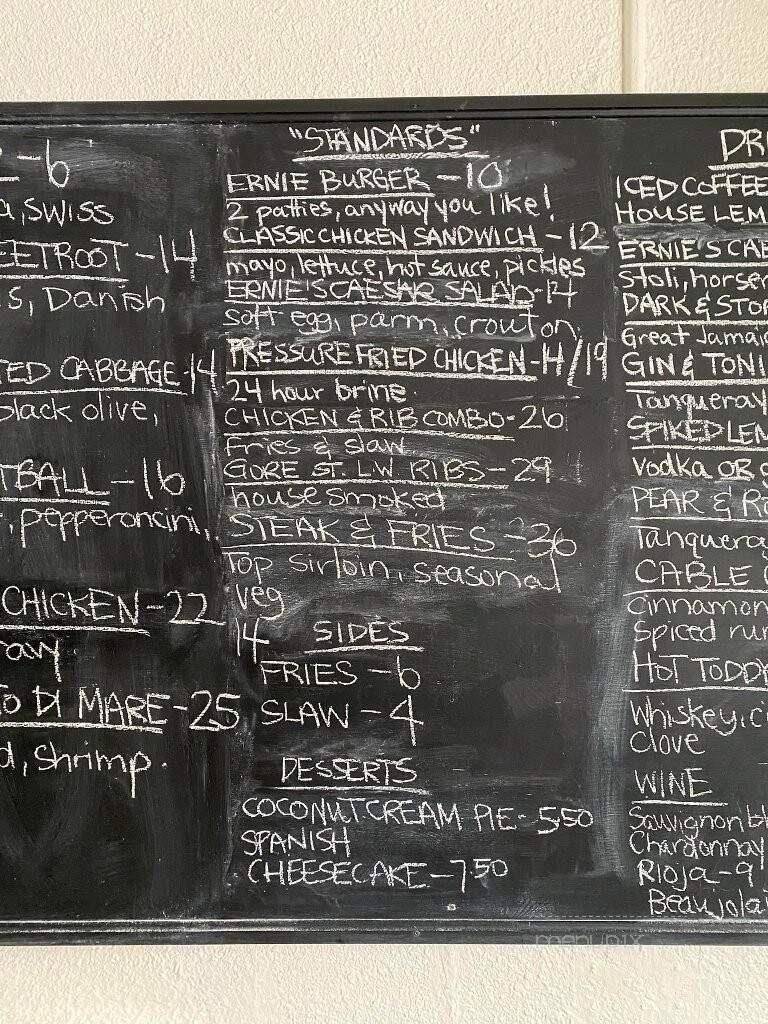 -6
SWISS
-14
S, Danish
CABBAGE-14
black olive,
-16
pepperoncini,
CHICKEN-22
DI MARE-25
shrimp.
"STANDARDS"
ERNIE BURGER-10
2 patties, anyway you like!
CLASSIC CHICKEN SANDWICH-12
mayo, lettuce, hot sauce, pickles
ERNIE'S CAESAR SALAD-14
soft egg, parm, crouton
PRESSURE FRIED CHICKEN-14/19
24 hour brine.
CHICKEN & RIB COMBO-26
Fries & slaw
GORE ST. L.W. RIBS-29
house smoked
STEAK & FRIES-36
Top sirloin, seasonal
veg
14 SIDES
FRIES-6
SLAW-4
DESSERTS
COCONUT CREAM PIE-5.50
SPANISH
CHEESECAKE-7.50
ICED COFFEE
HOUSE
ERNIE'S
Stoli,
DARK &
Great
GIN &
Tanqueray
SPIKED
vodka OR
PEAR &
Tanqueray
CABLE
Cinnamon
Spiced
HOT TODDY
Whiskey,
Clove
WINE
Sauvignon
Chardonnay
Rioja-9
menupix